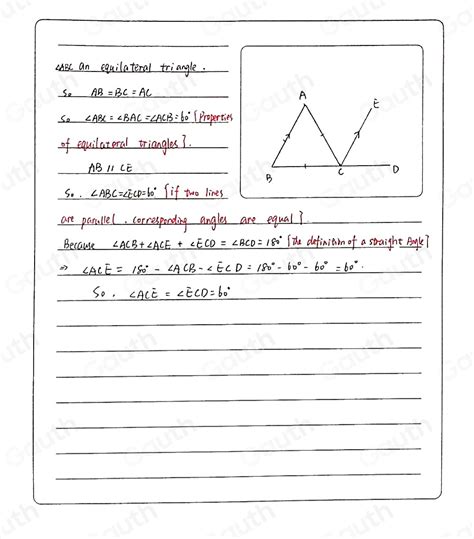 △ABC an equilateral triangle.
So AB = BC = AC
So ∠ABC = ∠BAC = ∠ACB = 60° [Properties
of equilateral triangles].
AB // CE
So. ∠ABC = ∠ECD = 60° [if two lines
are parallel, corresponding angles are equal].
Because ∠ACB + ∠ACE + ∠ECD = ∠BCD = 180° [the definition of a straight Angle]
⇒ ∠ACE = 180° - ∠ACB - ∠ECD = 180° - 60° - 60° = 60°.
So. ∠ACE = ∠ECD = 60°
A
E
B
C
D
Gauth